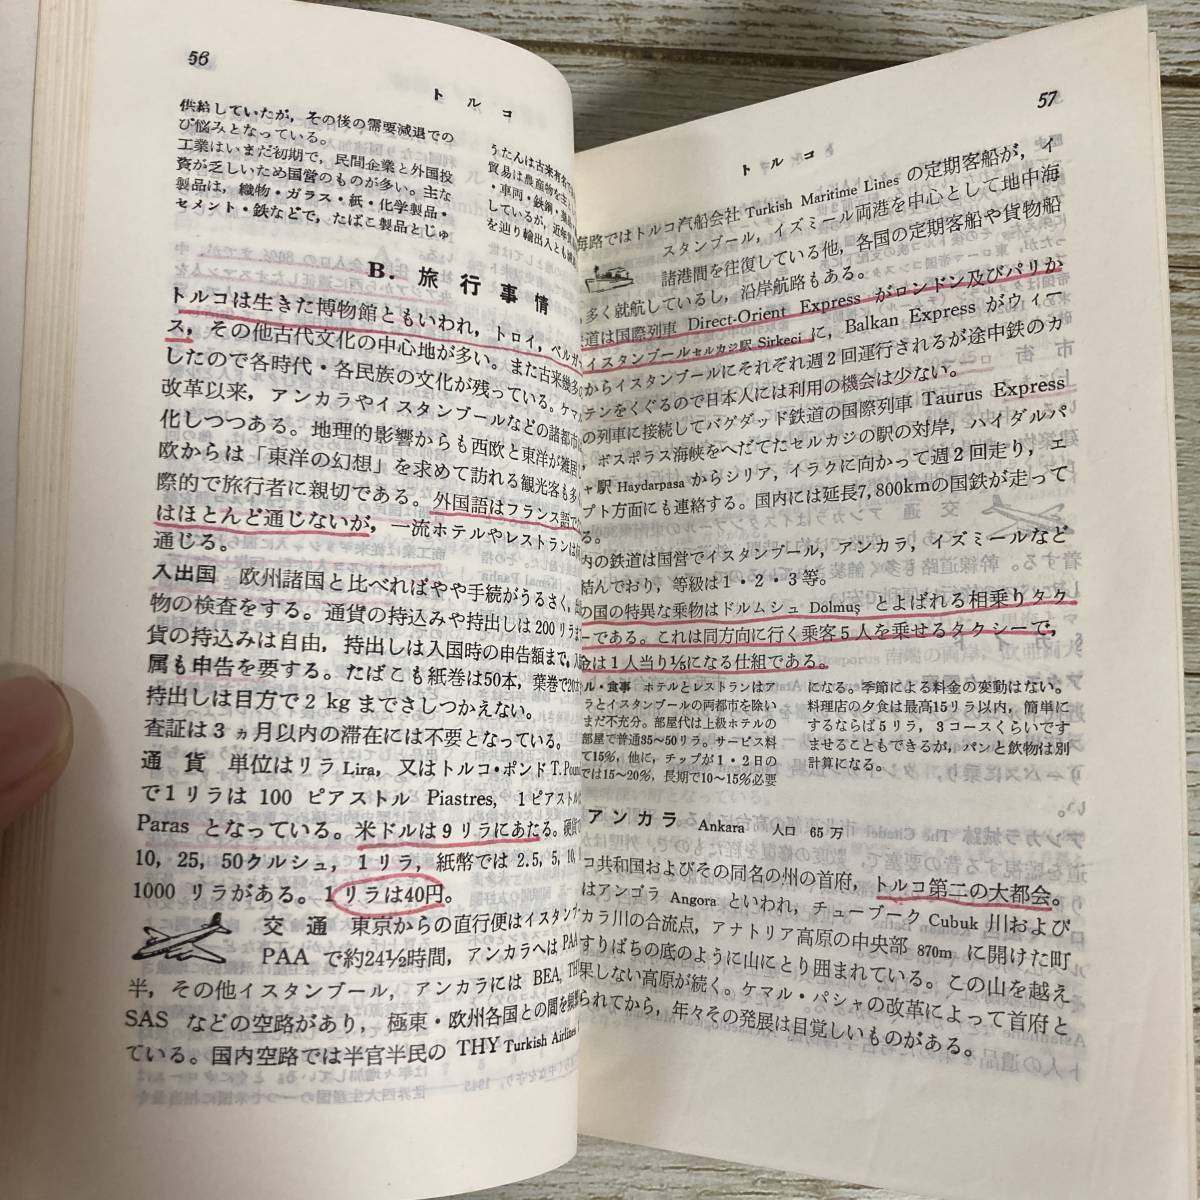 56
トルコ
供給していたが，その後の需要減退での
び悩みとなっている。
工業はいまだ初期で，民間企業と外国投
資が乏しいため国営のものが多い。主な
製品は，織物・ガラス・紙・化学製品・
セメント・鉄などで，たばこ製品とじゅ
うたんは古来有名で
貿易は農産物を主
・車両・鉄鋼・薬品
しているが，近年
を辿り輸出入とも
B. 旅行事情
トルコは生きた博物館ともいわれ，トロイ，ペルガ
ス，その他古代文化の中心地が多い。また古来幾多の
したので各時代・各民族の文化が残っている。ケマ
改革以来，アンカラやイスタンブールなどの諸都市は
化しつつある。地理的影響からも西欧と東洋が雑居
欧からは「東洋の幻想」を求めて訪れる観光客も多く
際的で旅行者に親切である。外国語はフランス語で
はほとんど通じないが，一流ホテルやレストランは
通じる。
入出国　欧州諸国と比べればやや手続がうるさく，
物の検査をする。通貨の持込みや持出しは200リラま
貨の持込みは自由，持出しは入国時の申告額まで，
属も申告を要する。たばこも紙巻は50本，葉巻で20
持出しは目方で2kgまでさしつかえない。
査証は3ヵ月以内の滞在には不要となっている。
通　貨　単位はリラ Lira，又はトルコ・ポンド T. Poun
で1リラは 100 ピアストル Piastres，1ピアストル
Paras となっている。米ドルは9リラにあたる。硬貨
10, 25, 50クルシュ，1リラ，紙幣では 2.5, 5, 10,
1000 リラがある。1リラは40円。
交　通　東京からの直行便はイスタンブ
PAA で約24½時間，アンカラへは PAA
半，その他イスタンブール，アンカラには BEA, TH
SAS などの空路があり，極東・欧州各国との間を
ている。国内空路では半官半民の THY Turkish Airlines
57
トルコ
海路ではトルコ汽船会社 Turkish Maritime Lines の定期客船が，イ
スタンブール，イズミール両港を中心として地中海
諸港間を往復している他，各国の定期客船や貨物船
多く就航しているし，沿岸航路もある。
道は国際列車 Direct-Orient Express がロンドン及びパリか
イスタンブールセルカジ駅 Sirkeci に，Balkan Express がウィー
からイスタンブールにそれぞれ週2回運行されるが途中鉄のカ
テンをくぐるので日本人には利用の機会は少ない。
の列車に接続してバグダッド鉄道の国際列車 Taurus Express
，ボスポラス海峡をへだてたセルカジの駅の対岸，ハイダルパ
ャ駅 Haydarpasa からシリア，イラクに向かって週2回走り，エ
プト方面にも連絡する。国内には延長7,800kmの国鉄が走って
る。
内の鉄道は国営でイスタンブール，アンカラ，イズミールなど
結んでおり，等級は1・2・3等。
の国の特異な乗物はドルムシュ Dolmuş とよばれる相乗りタク
ーである。これは同方向に行く乗客5人を乗せるタクシーで，
金は1人当り⅕になる仕組である。
ル・食事　ホテルとレストランはア
ラとイスタンブールの両都市を除い
まだ不充分。部屋代は上級ホテルの
部屋で普通35〜50リラ。サービス料
て15%，他に，チップが1・2日の
では15〜20%，長期で10〜15%必要
になる。季節による料金の変動はない。
料理店の夕食は最高15リラ以内，簡単に
するならば5リラ，3コースくらいです
ませることもできるが，パンと飲物は別
計算になる。
アンカラ　Ankara　人口　65万
コ共和国およびその同名の州の首府，トルコ第二の大都会。
はアンゴラ Angora といわれ，チューブーク Cubuk 川および
カラ川の合流点，アナトリア高原の中央部 870m に開けた町
すりばちの底のように山にとり囲まれている。この山を越え
果しない高原が続く。ケマル・パシャの改革によって首府と
られてから，年々その発展は目覚しいものがある。